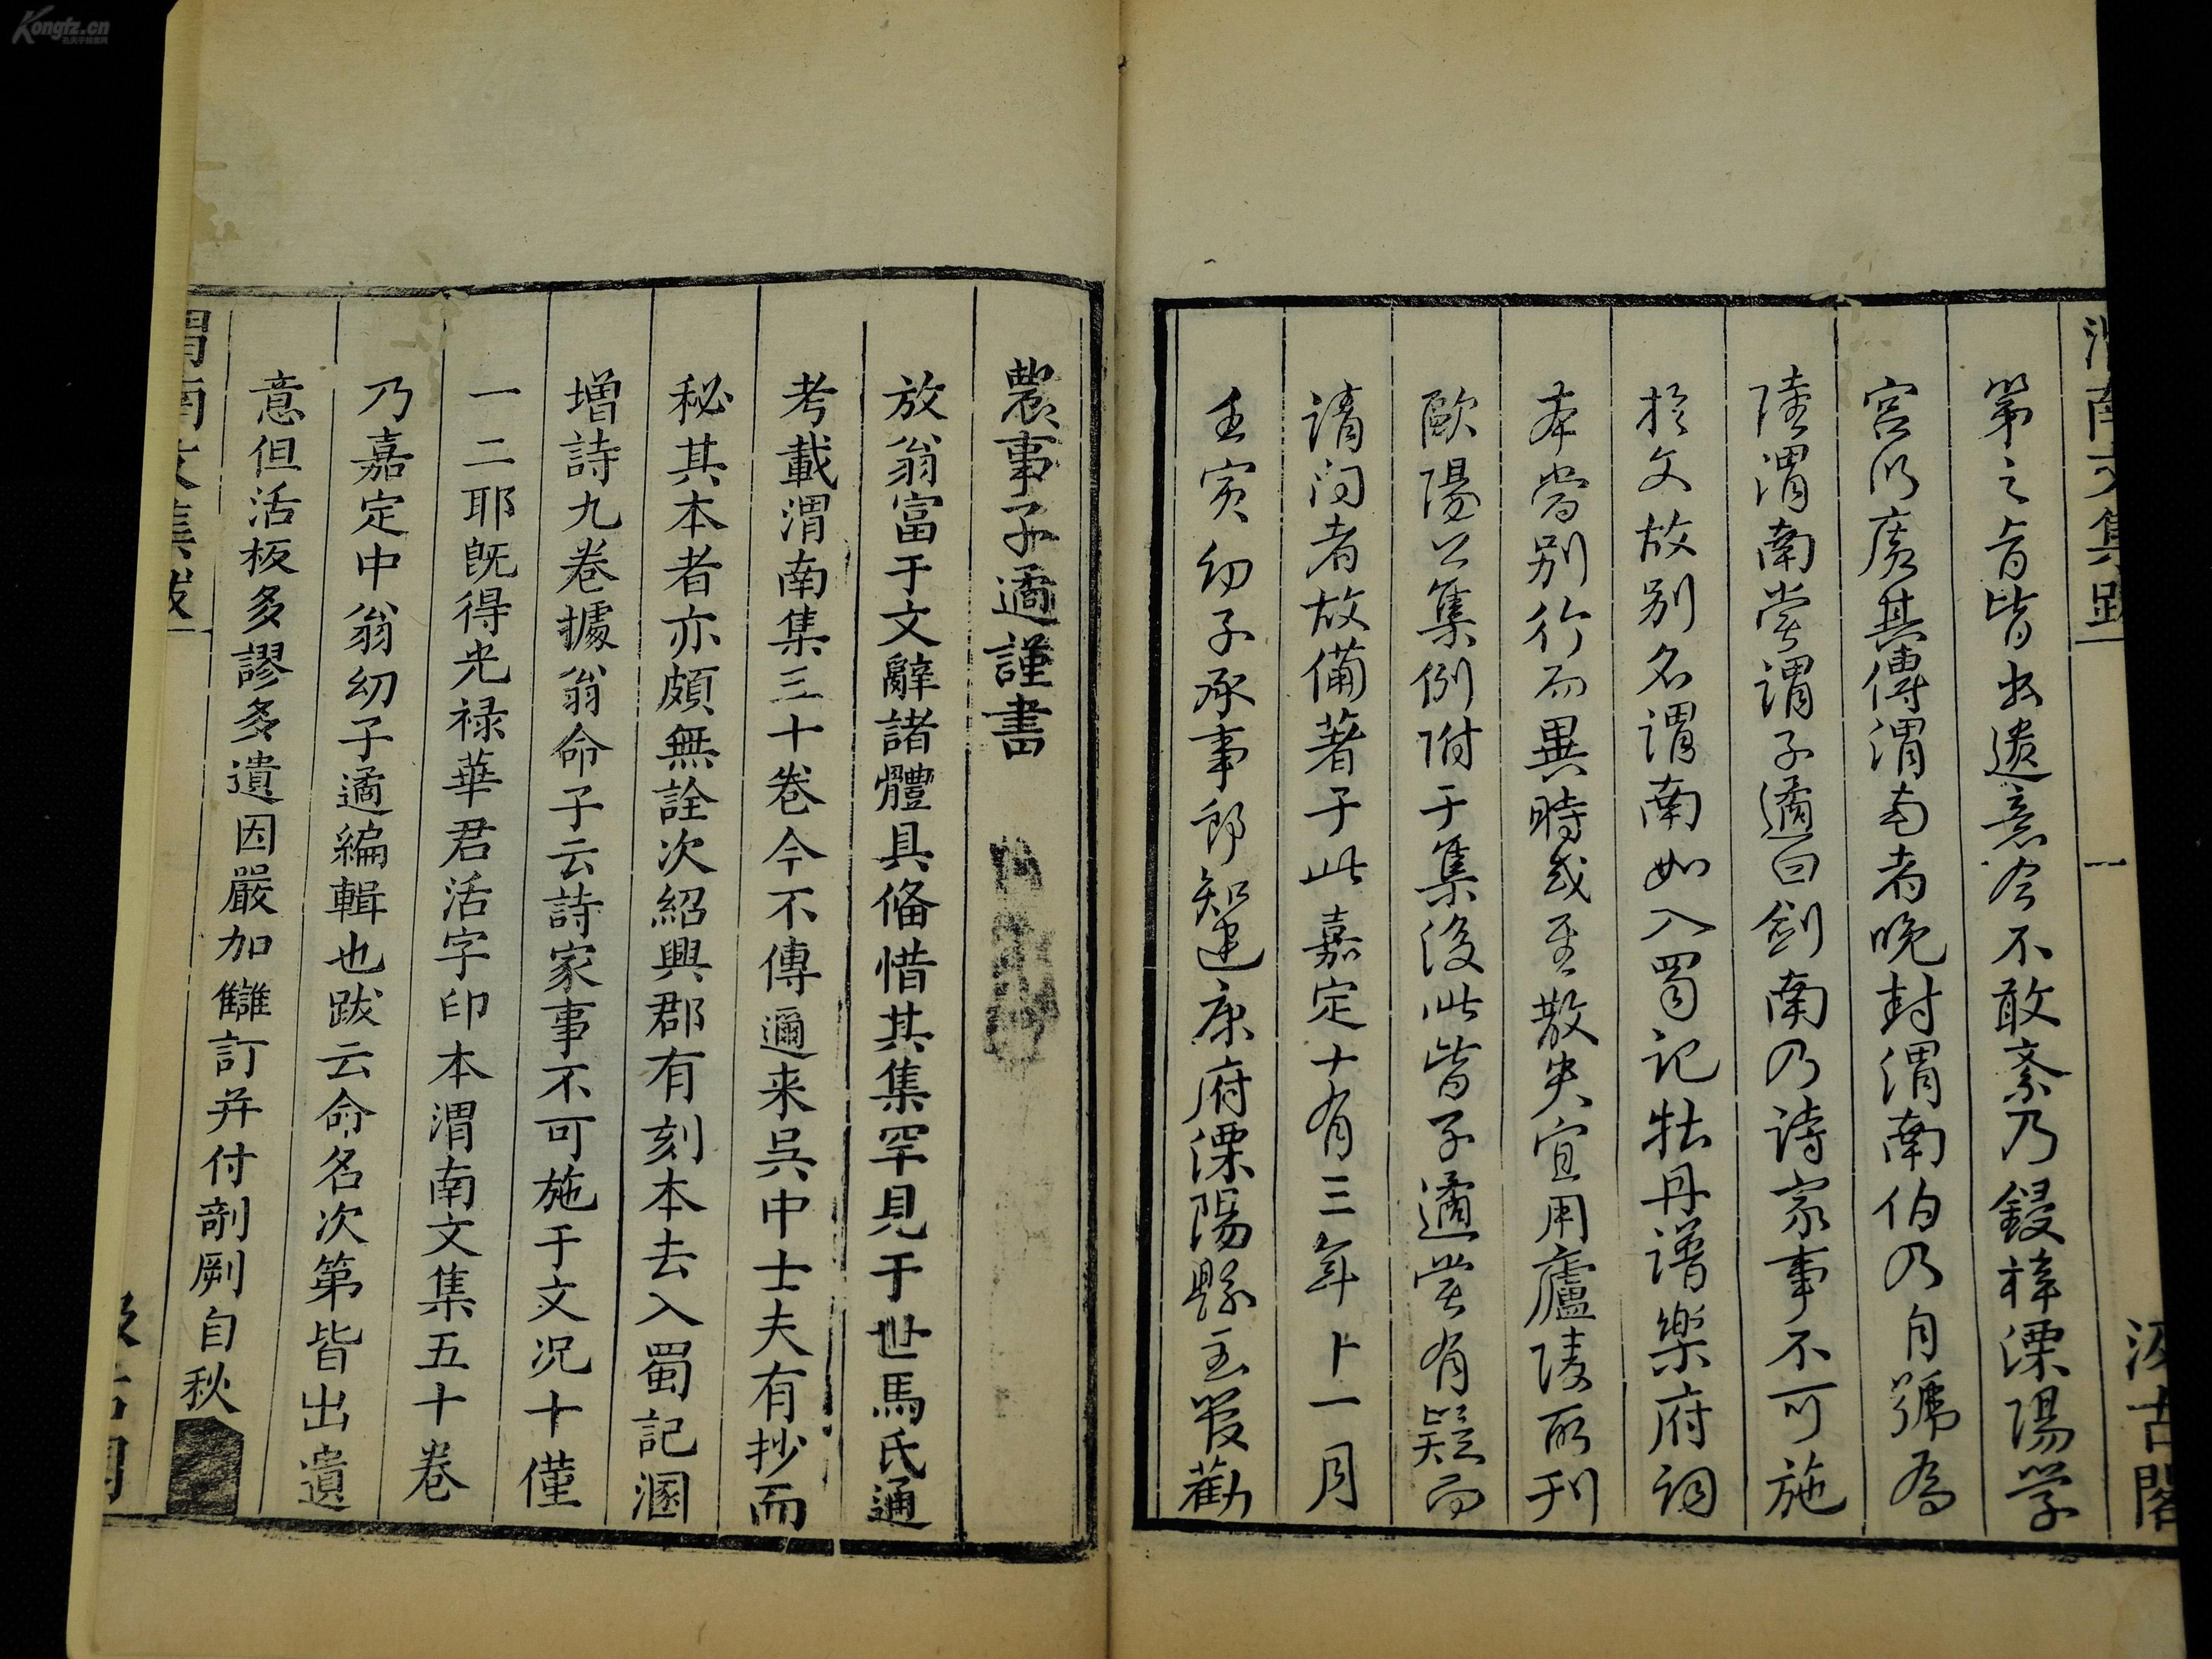 渭南文集跋
一
汲古閣
第之旨皆出遺意今不敢紊乃鋟梓溧陽學
宮以廣其傳渭南者晚封渭南伯乃自號為
陸渭南嘗謂子遹曰劍南乃詩家事不可施
於文故别名渭南如入蜀記牡丹譜樂府詞
本當别行而異時或至散失宜用廬陵所刊
歐陽公集例附于集後此皆子遹嘗有疑而
請问者故備著于此嘉定十有三年十一月
壬寅幼子承事郎知建康府溧陽縣主管勸
農事子遹謹書
放翁富于文辭諸體具偹惜其集罕見于世馬氏通
考載渭南集三十卷今不傳邇来吳中士夫有抄而
秘其本者亦頗無詮次紹興郡有刻本去入蜀記溷
增詩九卷據翁命子云詩家事不可施于文况十僅
一二耶旣得光禄華君活字印本渭南文集五十卷
乃嘉定中翁幼子遹編輯也跋云命名次第皆出遺
意但活板多謬多遺因嚴加讎訂并付剞劂自秋
渭南文集跋
汲古閣
Kongfz.cn